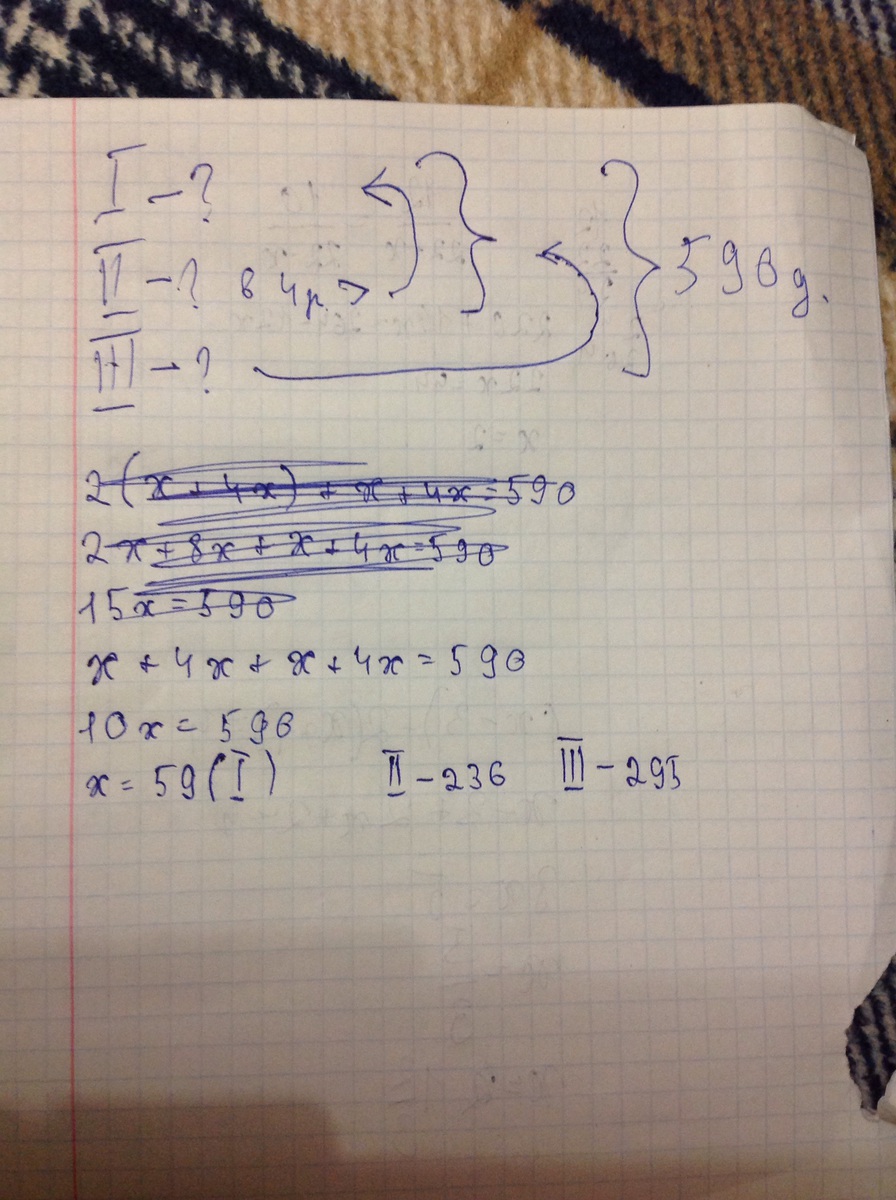 I - ?
II - ? в 4 р >
III - ?
590 д.
2(x + 4x) + x + 4x = 590
2x + 8x + x + 4x = 590
15x = 590
x + 4x + x + 4x = 590
10x = 590
x = 59 (I) II - 236 III - 295